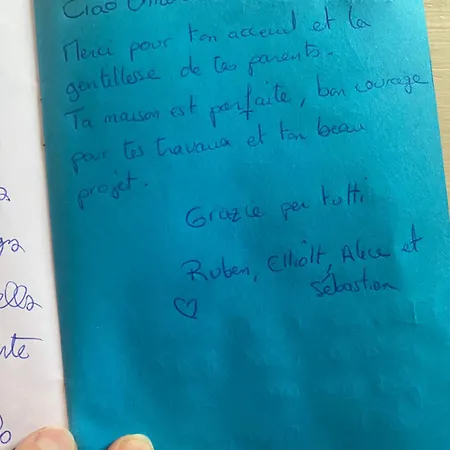 Ciao
Merci pour ton acceuil et la
gentillesse de tes parents.
Ta maison est parfaite, bon courage
pour tes travaux et ton beau
projet.
Grazie per tutti
Ruben, Elliott, Alice et
Sébastian
ella